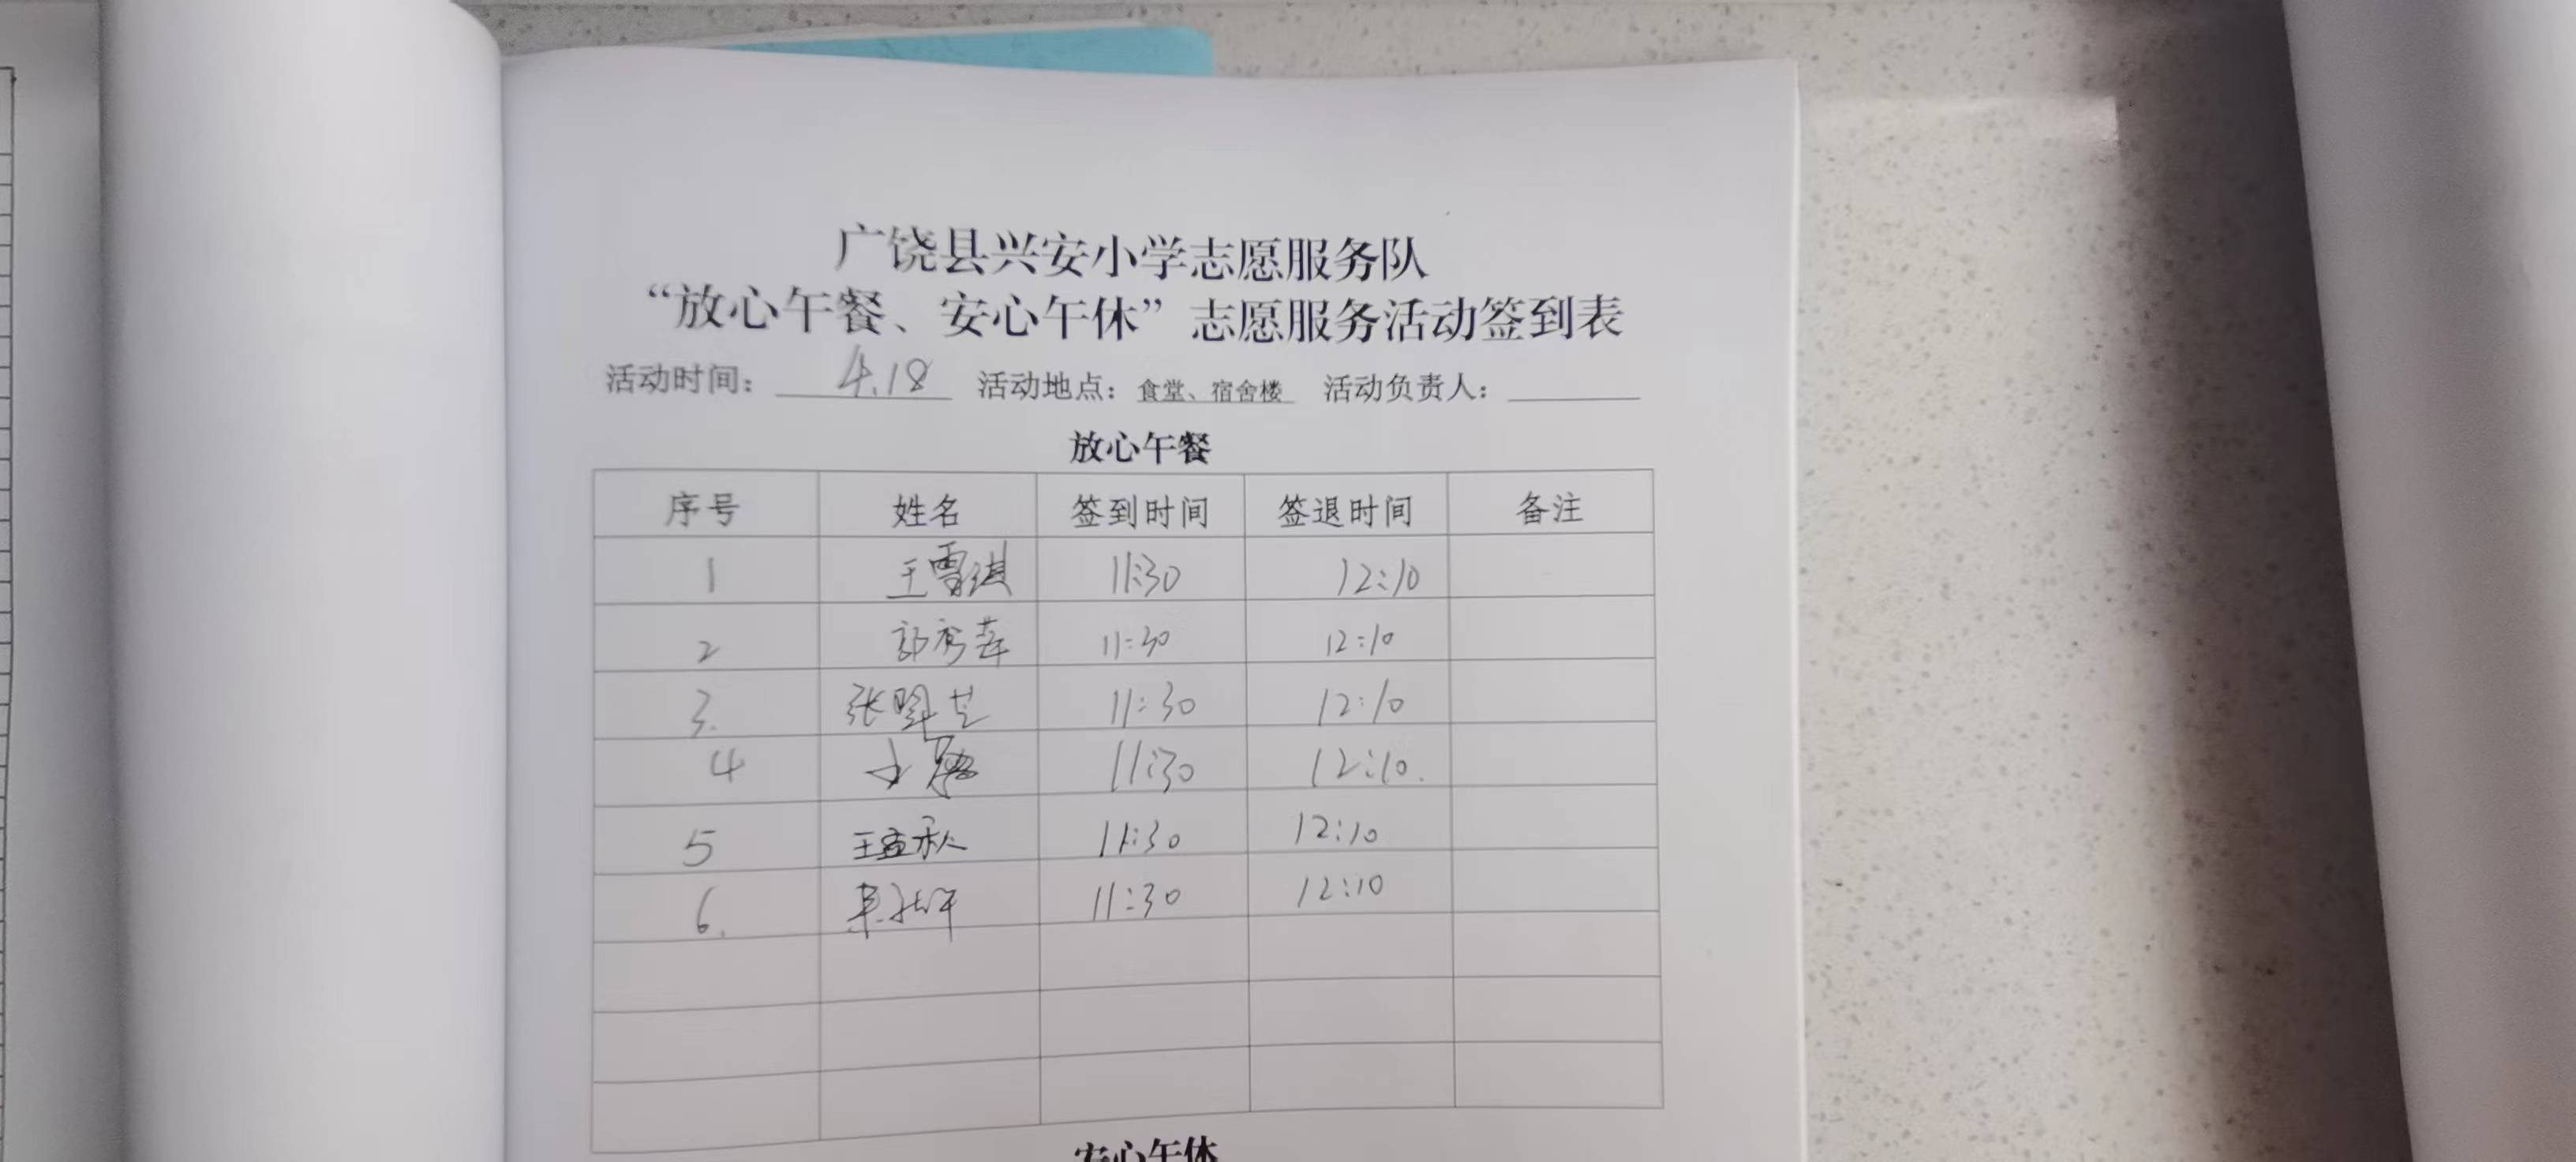 广饶县兴安小学志愿服务队
“放心午餐、安心午休”志愿服务活动签到表
活动时间： 4.18 活动地点：食堂、宿舍楼 活动负责人：
放心午餐
序号 姓名 签到时间 签退时间 备注
1 王雪琪 11:30 12:10
2 郭秀莲 11:30 12:10
3. 张 芝 11:30 12:10
4 11:30 12:10.
5 王孟秋 11:30 12:10
6. 11:30 12:10
安心午休